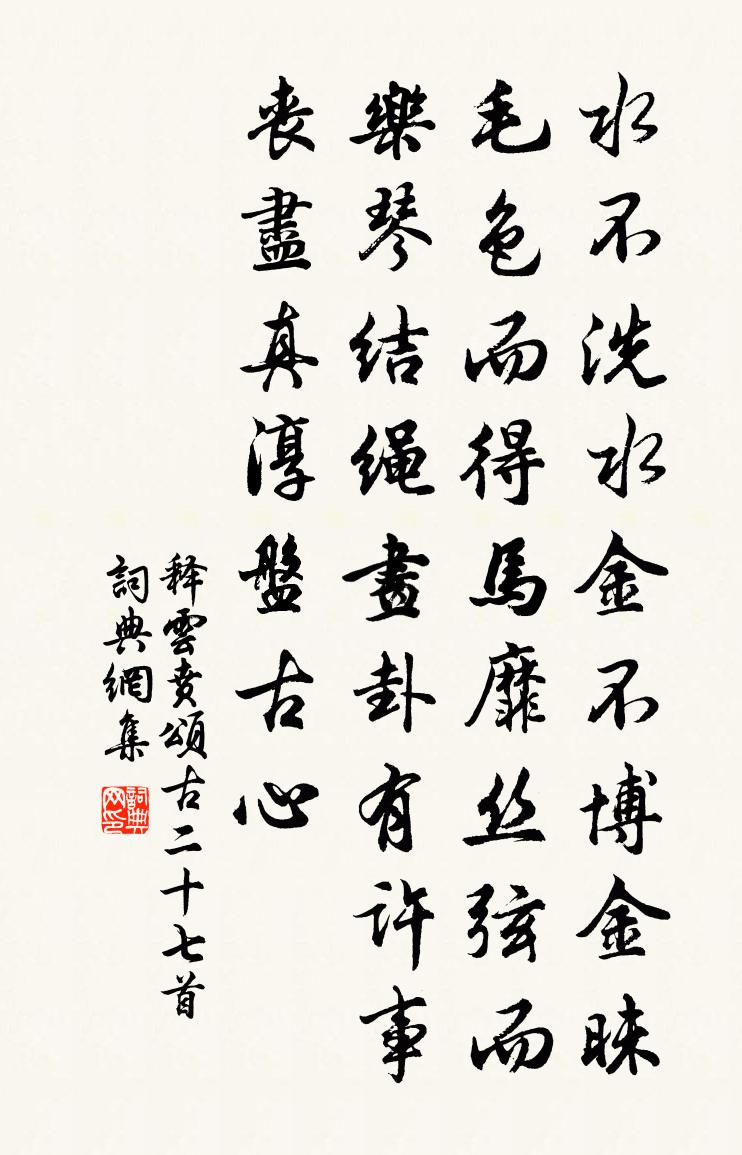 水不洗水金不博金昧
毛色而得馬靡丝弦而
樂琴结绳畫卦有许事
丧盡真淳盤古心
释雲賁頌古二十七首
詞典網集
詞典网印